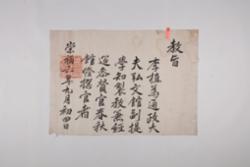 教旨
李植爲通政大
夫弘文館副提
學知製教兼經
筵參贊官春秋
館修撰官者
崇禎六年九月初四日